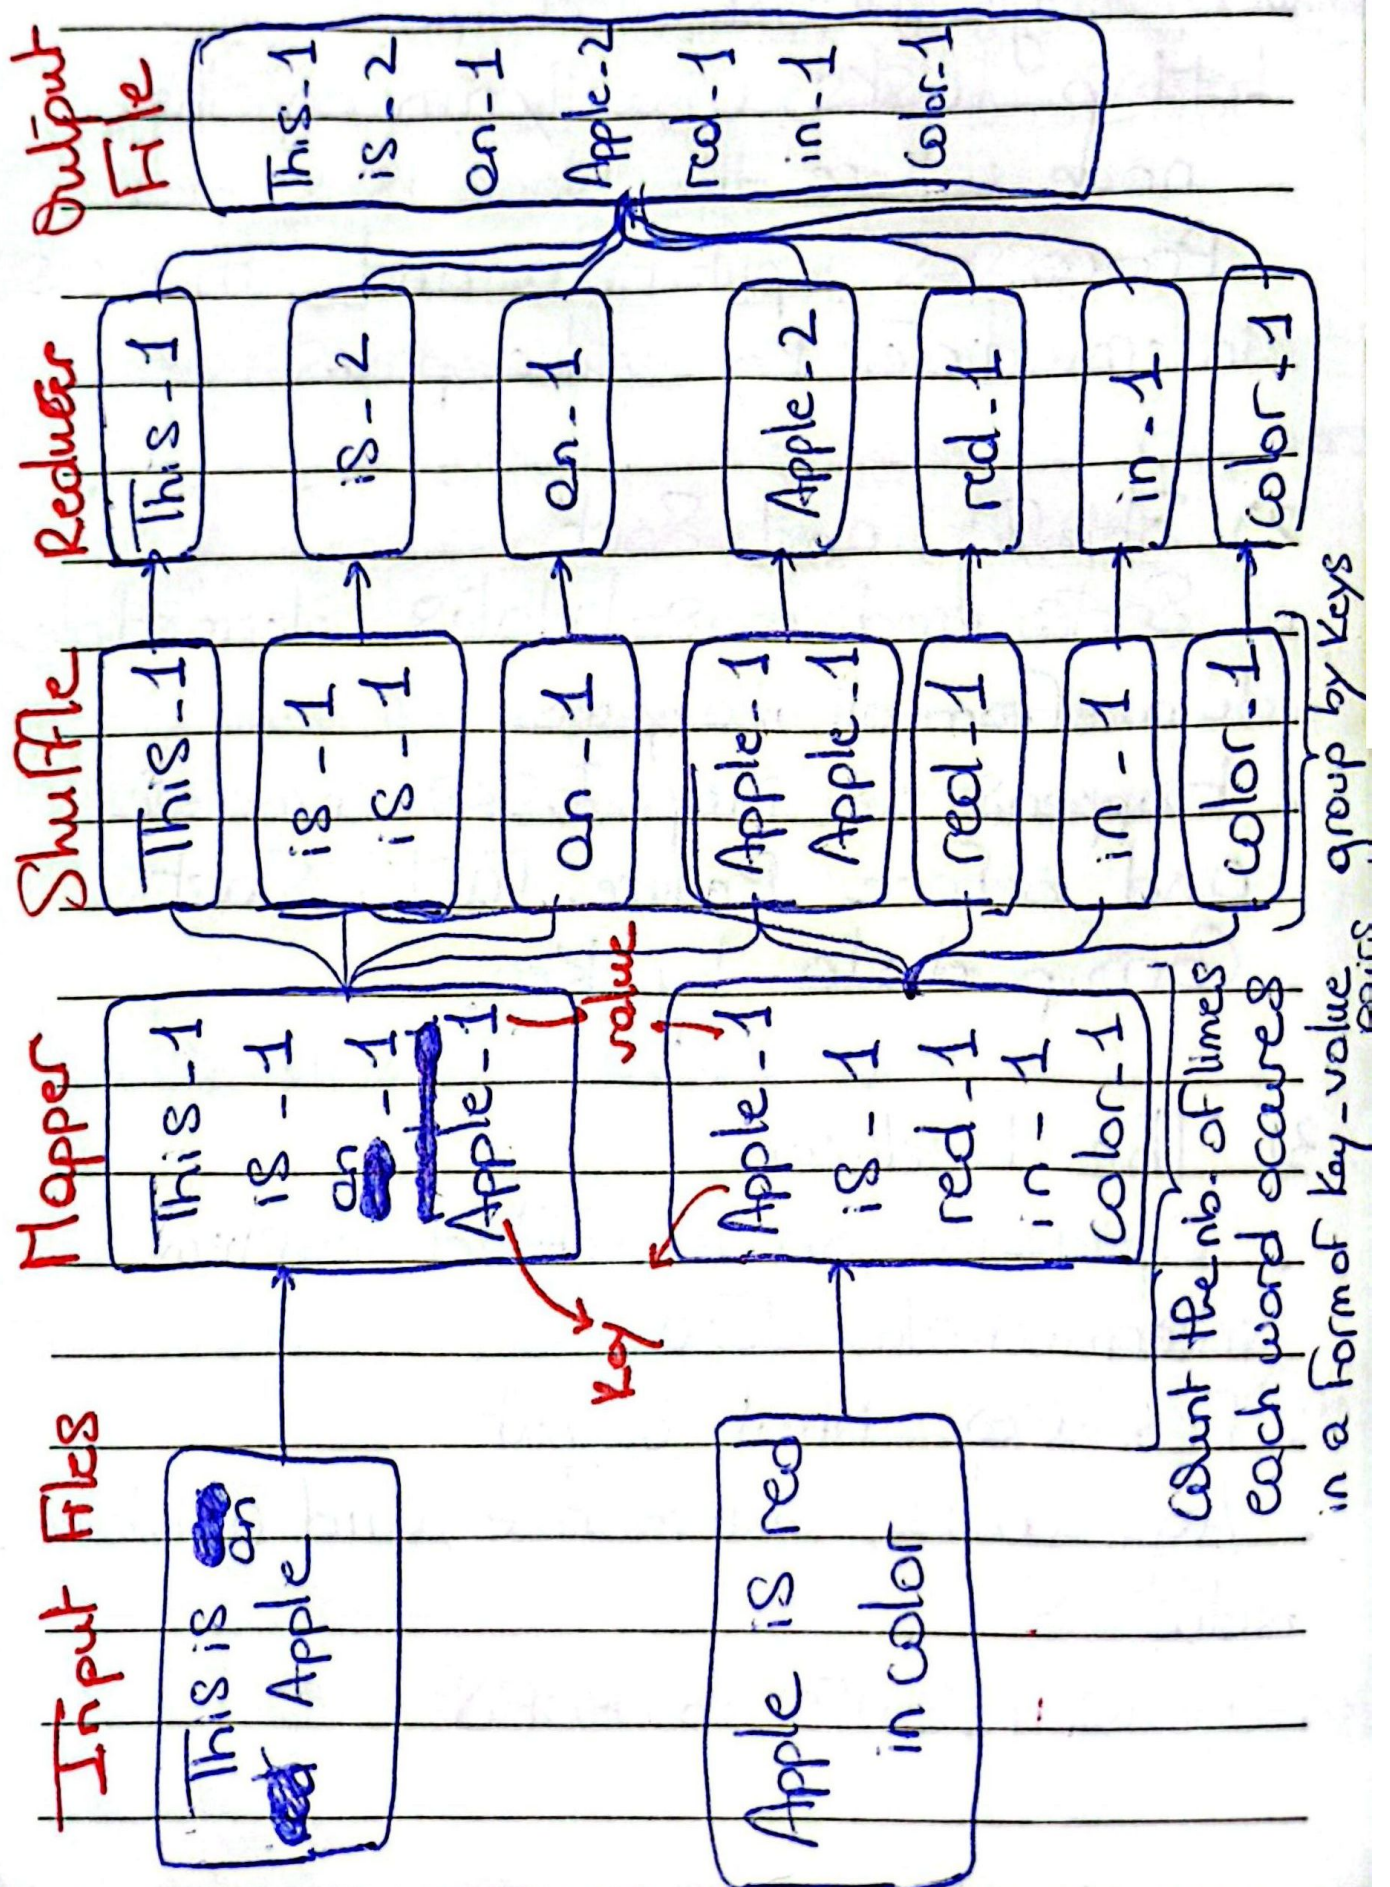 Input Files
This is an
Apple
Apple is red
in color
Mapper
This - 1
is - 1
an - 1
Apple - 1
Apple - 1
is - 1
red - 1
in - 1
color - 1
key
value
count the nb. of times
each word occures
in a form of key-value
pairs
Shuffle
This - 1
is - 1
is - 1
an - 1
Apple - 1
Apple - 1
red - 1
in - 1
color - 1
group by keys
Reducer
This - 1
is - 2
an - 1
Apple - 2
red - 1
in - 1
color - 1
Output
File
This - 1
is - 2
an - 1
Apple - 2
red - 1
in - 1
color - 1